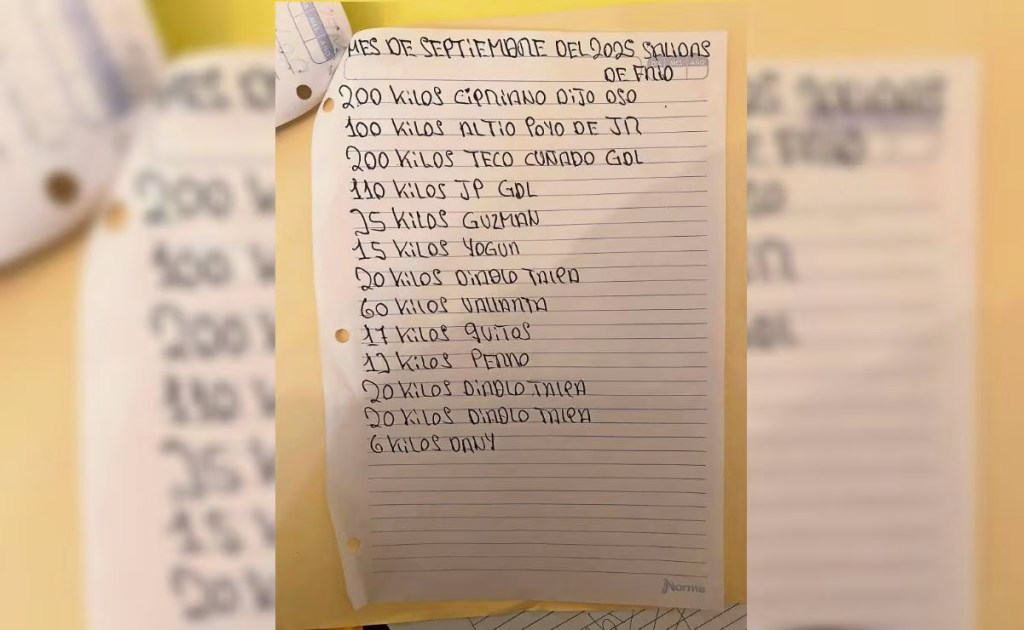 MES DE SEPTIEMBRE DEL 2025 SALIDAS
DIA MES AÑO
DE FRIO
200 KILOS CIPRIANO DIJO OSO
100 KILOS ALTIO POYO DE JR
200 KILOS TECO CUÑADO GDL
110 KILOS JP GDL
35 KILOS GUZMAN
15 KILOS YOGUR
20 KILOS DIABLO TALPA
60 KILOS VALLARTA
17 KILOS QUITOS
13 KILOS PERRO
20 KILOS DIABLO TALPA
20 KILOS DIABLO TALPA
6 KILOS DANY
Norma